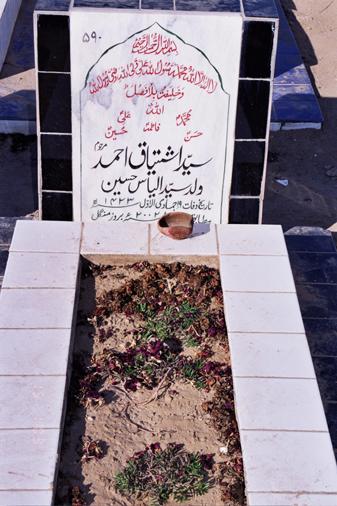 ۵۹۰
بسم اللہ الرحمن الرحیم
لا الہ الا اللہ محمد رسول اللہ علی ولی اللہ وصی رسول اللہ
وخلیفتہ بلا فصل
اللہ
محمد علی
فاطمہ
حسن حسین
سید اشتیاق احمد مرحوم
ولد سید الیاس حسین
تاریخ وفات ۱۹ جمادی الاول ۱۴۲۳ھ
۲۰۰۲ بروز منگل